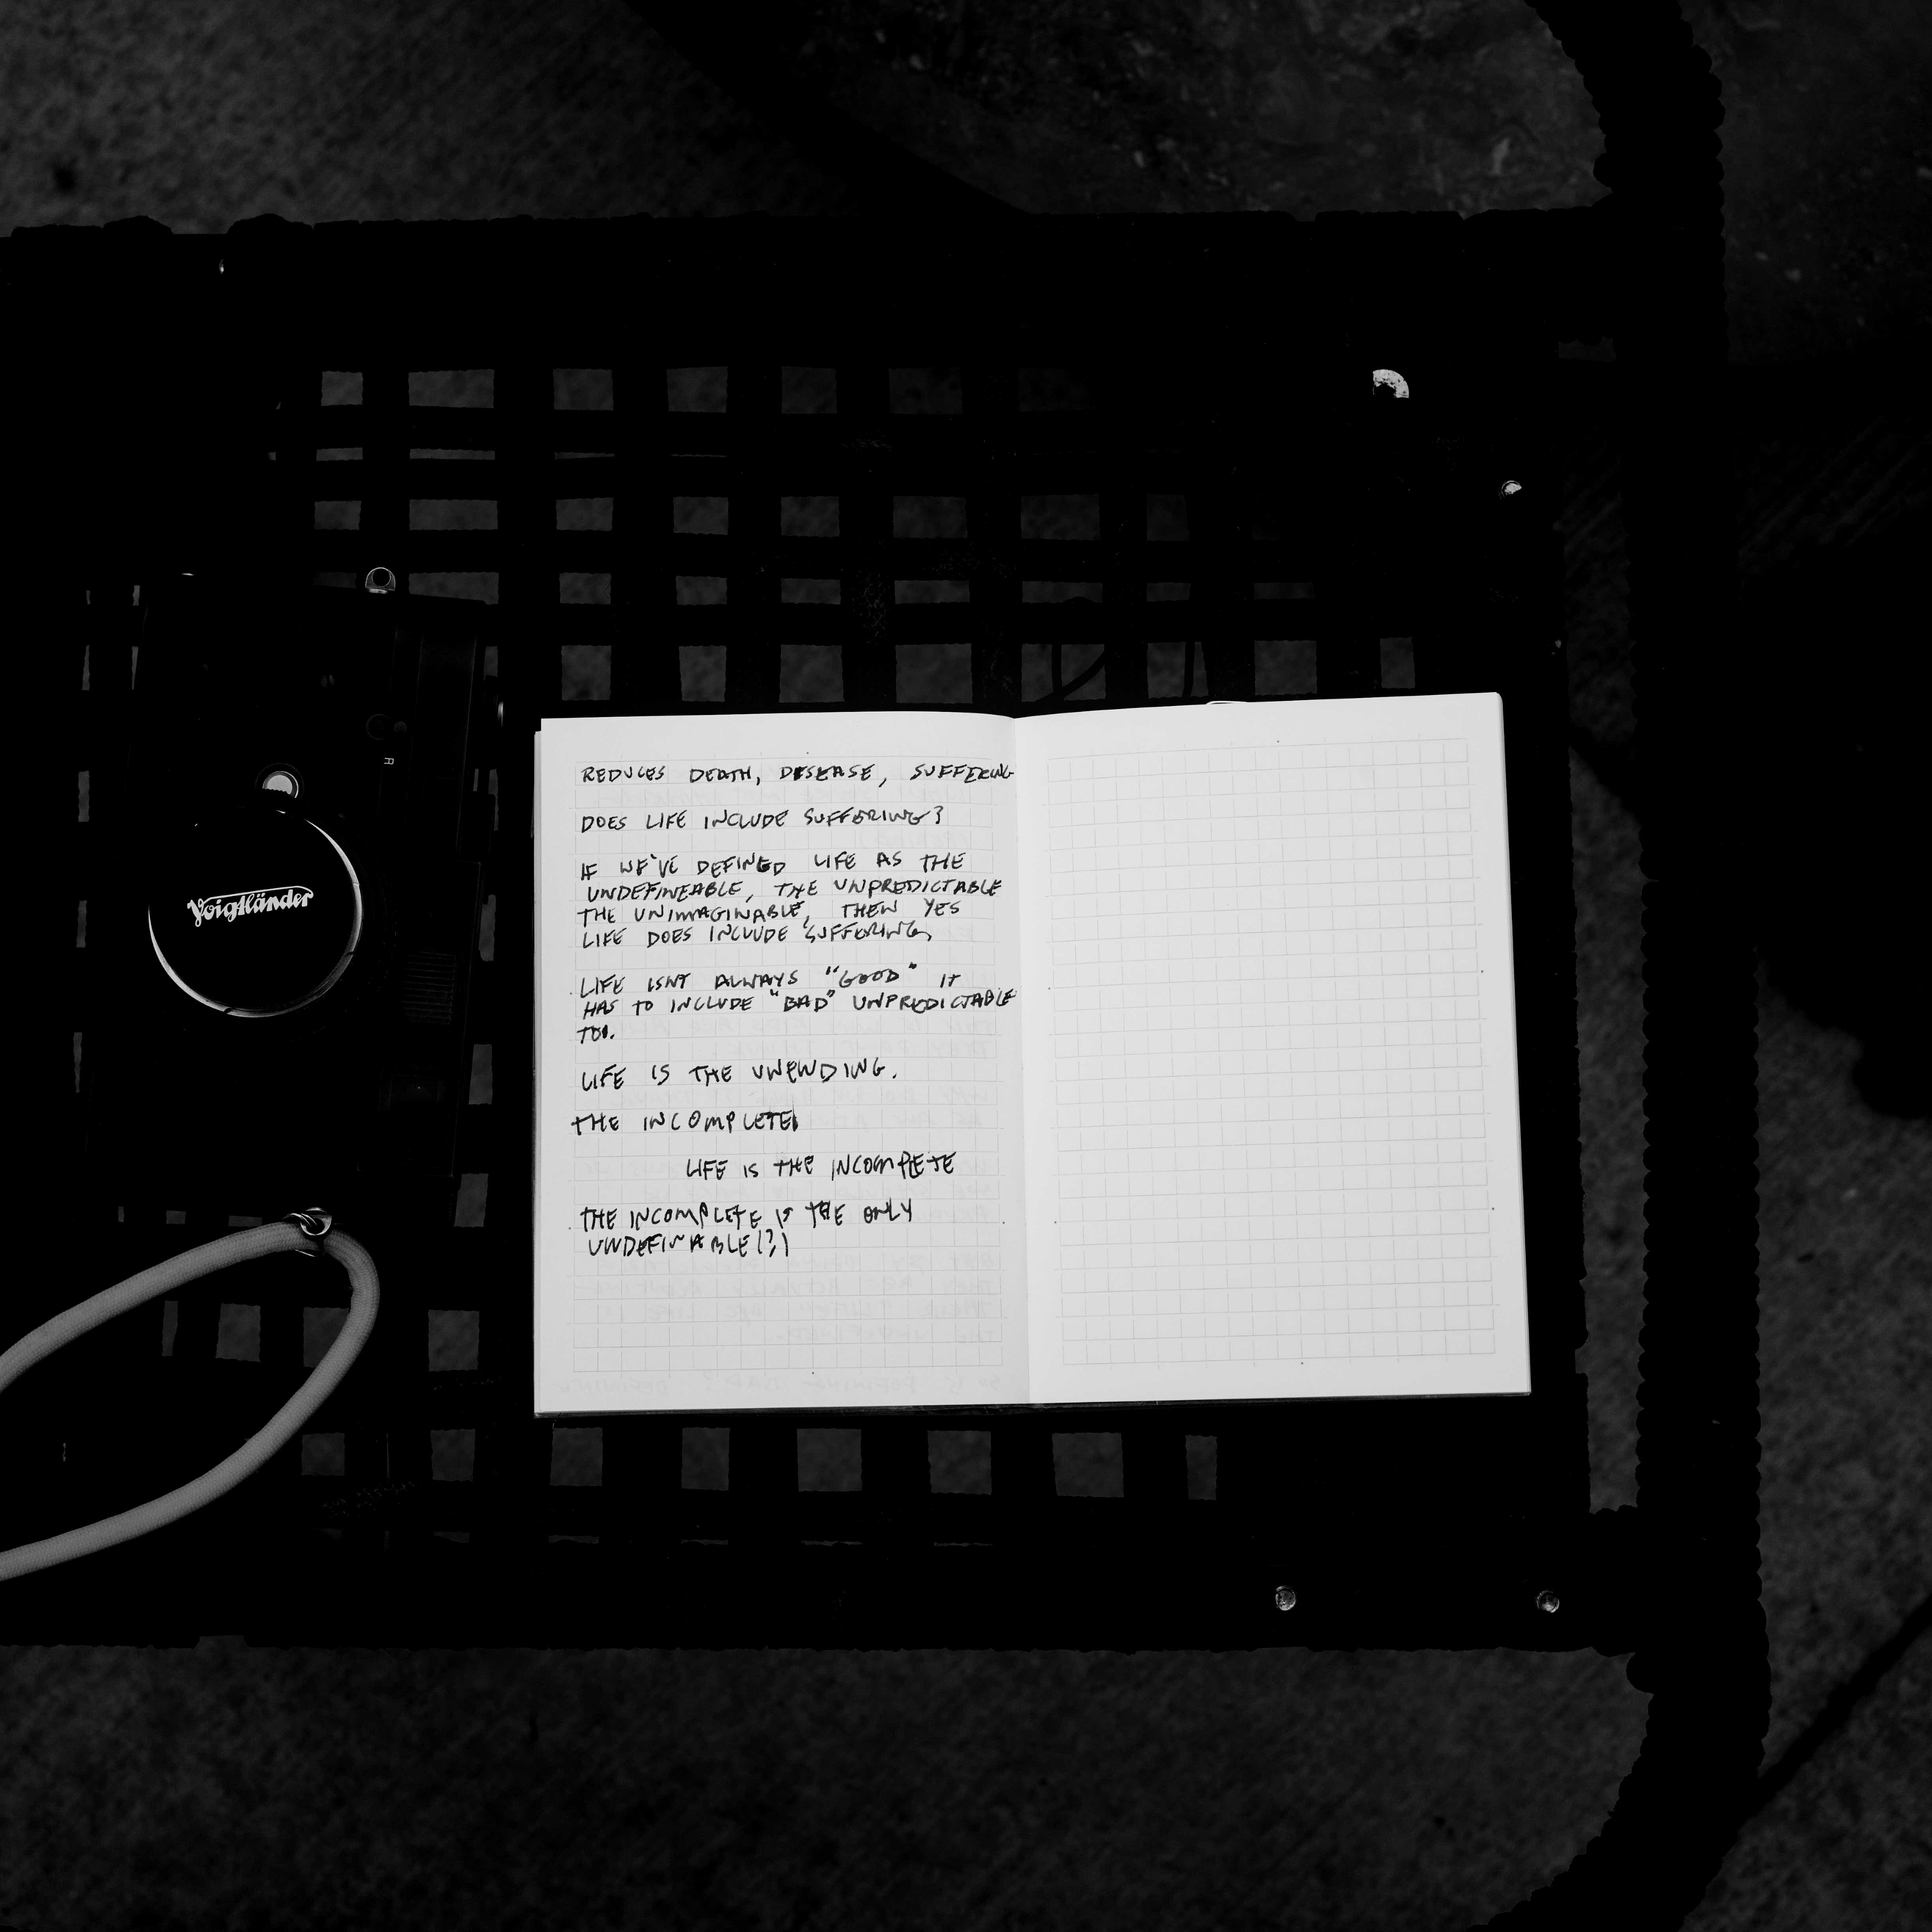 Voigtländer
A
REDUCES DEATH, DISEASE, SUFFERING
DOES LIFE INCLUDE SUFFERING?
IF WE'VE DEFINED LIFE AS THE
UNDEFINEABLE, THE UNPREDICTABLE
THE UNIMAGINABLE, THEN YES
LIFE DOES INCLUDE SUFFERING,
LIFE ISNT ALWAYS "GOOD" IT
HAS TO INCLUDE "BAD" UNPREDICTABLE
TOO.
LIFE IS THE UNENDING.
THE INCOMPLETE
LIFE IS THE INCOMPLETE
THE INCOMPLETE IS THE ONLY
UNDEFINABLE(?)